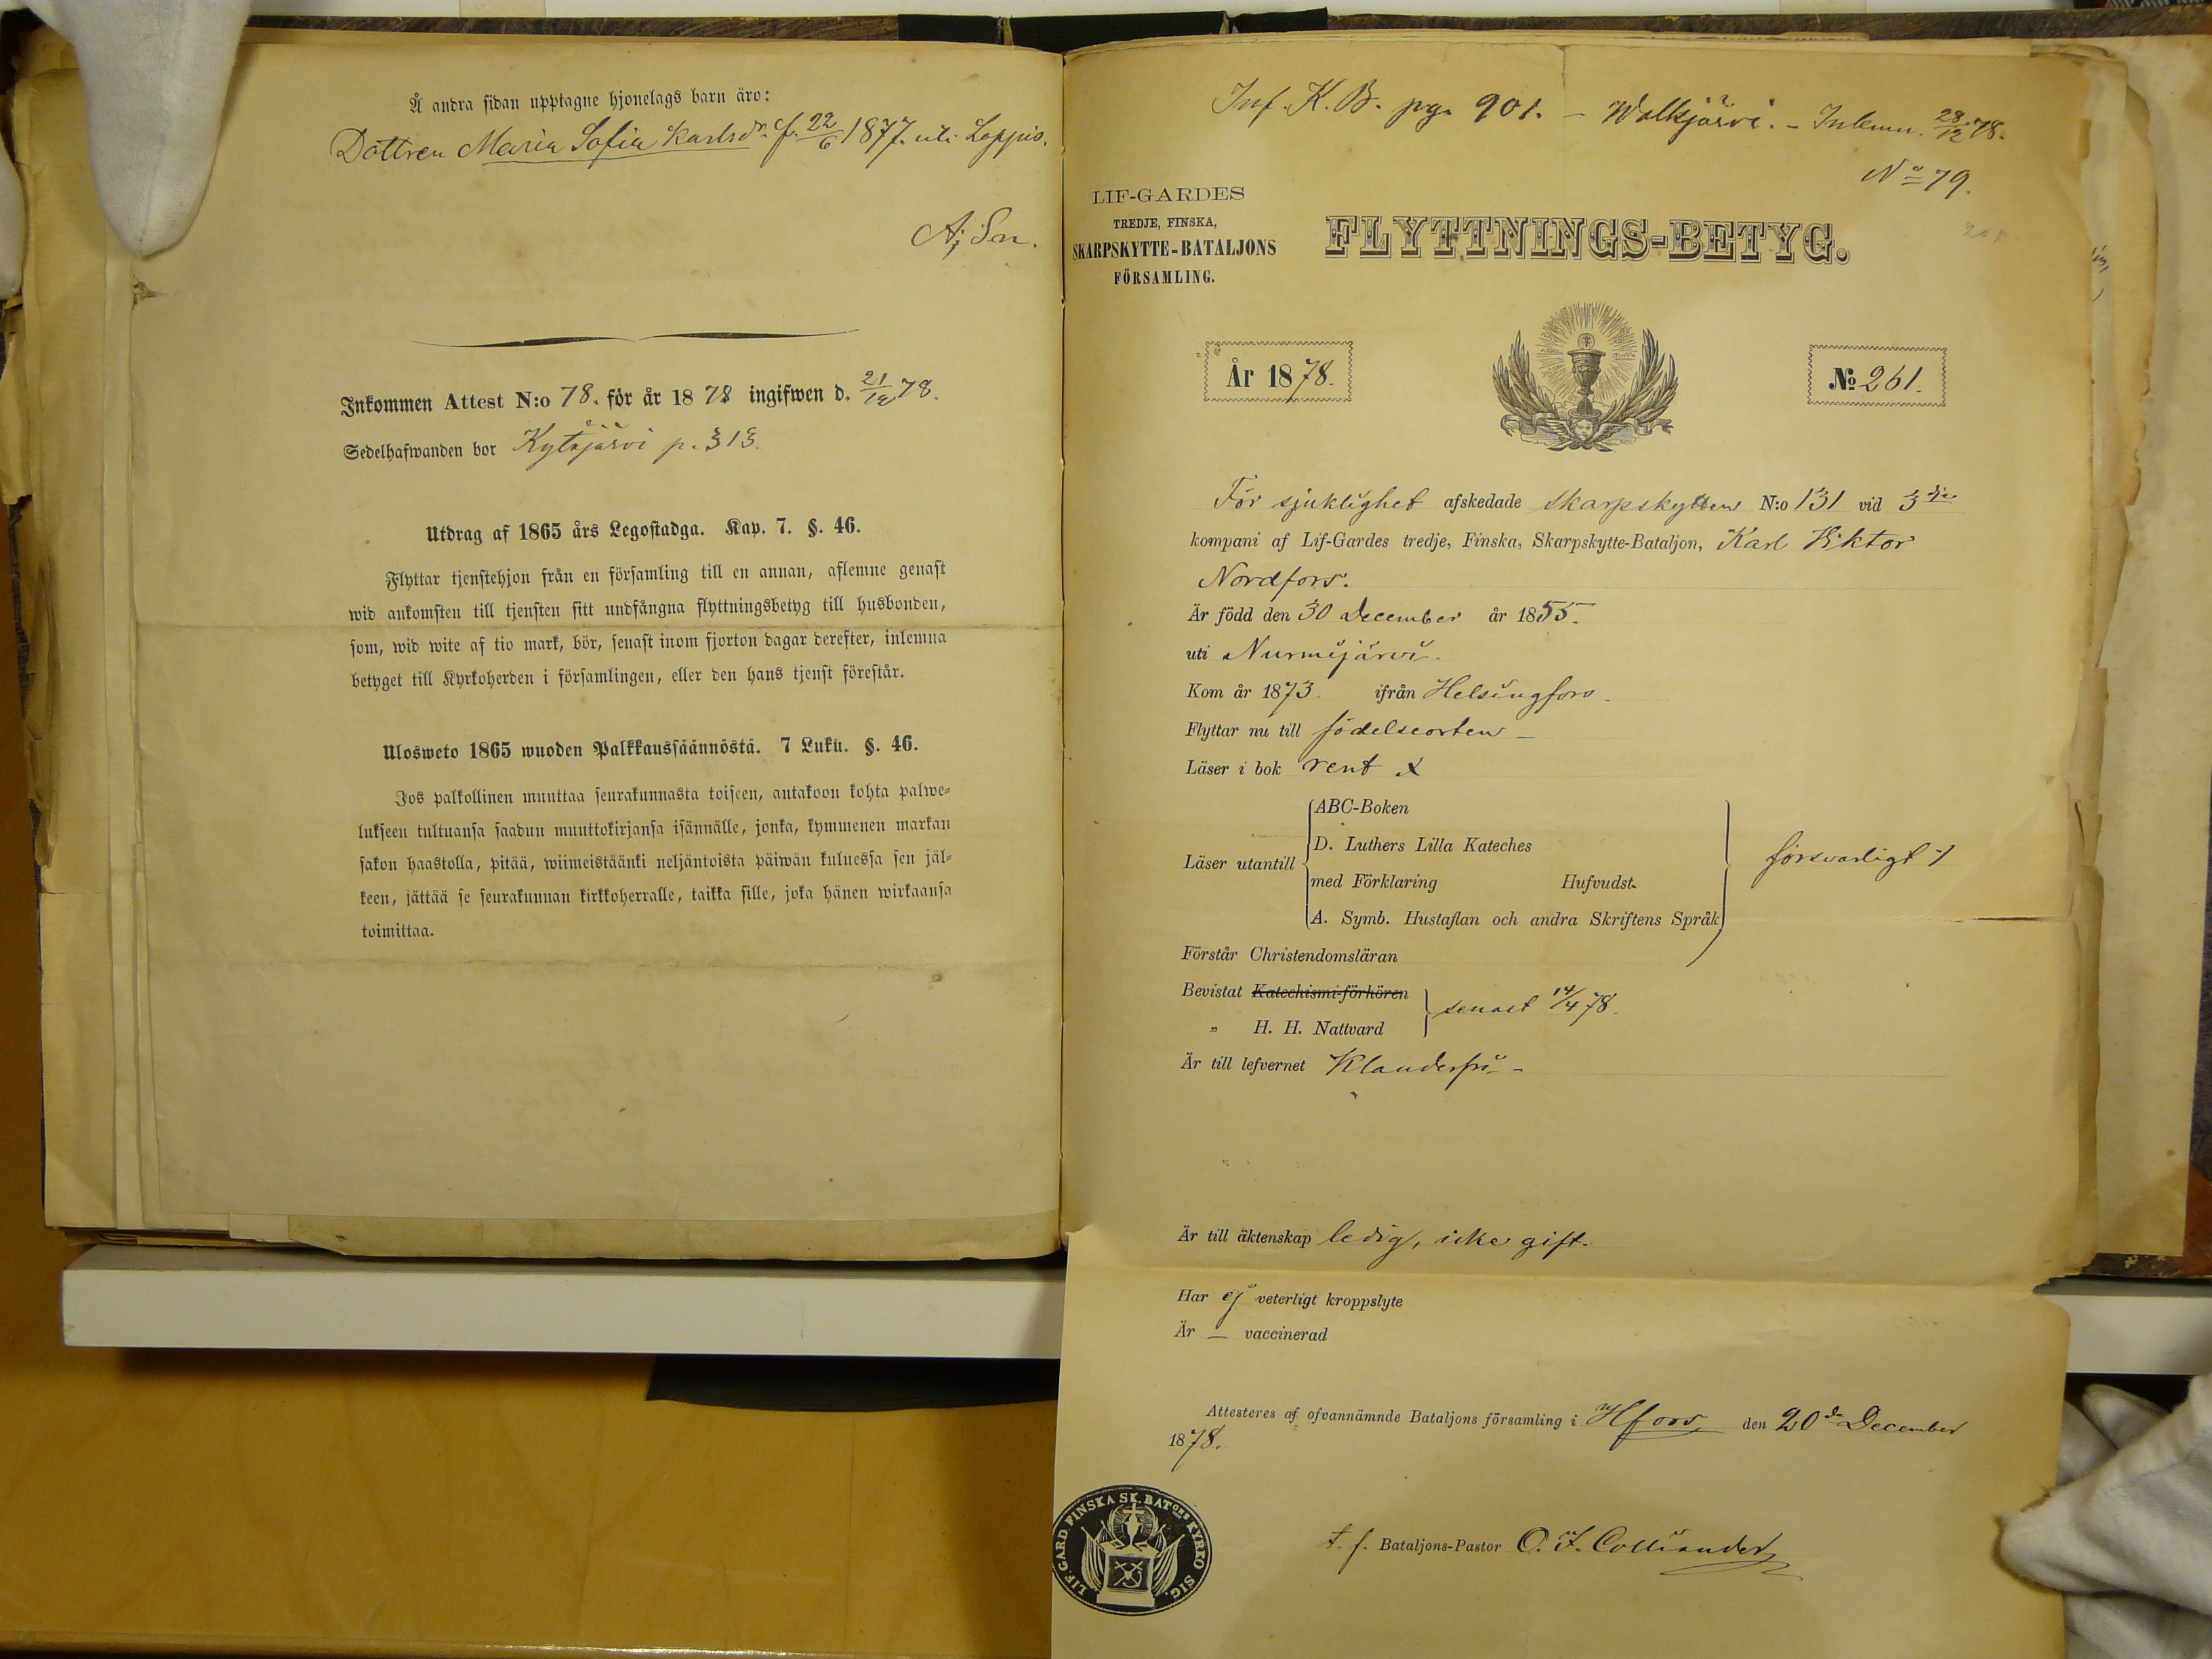 Å andra sidan upptagne hjonelags barn äro:
Dottren Maria Sofia Karlsdr. f. 22/6 1877. uti Loppis.
Inkommen Attest N:o 78. för år 1878 ingifwen d. 21/12 78.
Sedelhafwanden bor Kytäjärvi p. 313.
Utdrag af 1865 års Legostadga. Kap. 7. §. 46.
Flyttar tjenstehjon från en församling till en annan, aflemne genast
wid ankomsten till tjensten sitt undfångna flyttningsbetyg till husbonden,
som, wid wite af tio mark, bör, senast inom fjorton dagar derefter, inlemna
betyget till Kyrkoherden i församlingen, eller den hans tjenst förestår.
Ulosweto 1865 wuoden Palkkaussäännöstä. 7 Luku. §. 46.
Jos palkollinen muuttaa seurakunnasta toiseen, antakoon kohta palwe-
lukseen tultuansa saadun muuttokirjansa isännälle, jonka, kymmenen markan
sakon haastolla, pitää, wiimeistäänki neljäntoista päiwän kuluessa sen jäl-
keen, jättää se seurakunnan kirkkoherralle, taikka sille, joka hänen wirkaansa
toimittaa.
Inf. K. B. pg. 901. – Walkjärvi. – Inlemn. 28/12 78.
No 79.
LIF-GARDES
TREDJE, FINSKA,
SKARPSKYTTE-BATALJONS
FÖRSAMLING.
FLYTTNINGS-BETYG.
År 1878.
No 261.
För sjuklighet afskedade skarpskytten N:o 131 vid 3dje
kompani af Lif-Gardes tredje, Finska, Skarpskytte-Bataljon, Karl Viktor
Nordfors.
Är född den 30 December år 1855.
uti Nurmijärvi.
Kom år 1873. ifrån Helsingfors.
Flyttar nu till födelseorten –
Läser i bok rent
Läser utantill
ABC-Boken
D. Luthers Lilla Kateches
med Förklaring Hufvudst.
A. Symb. Hustaflan och andra Skriftens Språk
försvarligt
Förstår Christendomsläran
Bevistat Katechismi-förhören
" H. H. Nattvard
senast 14/4 78.
Är till lefvernet Klanderfri –
Är till äktenskap ledig, icke gift.
Har ej veterligt kroppslyte
Är — vaccinerad
Attesteres af ofvannämnde Bataljons församling i Hfors den 20de December
1878.
t. f. Bataljons-Pastor O. I. Colliander
LIF. GARD FINSKA SK. BATONS KYRKO SIG.